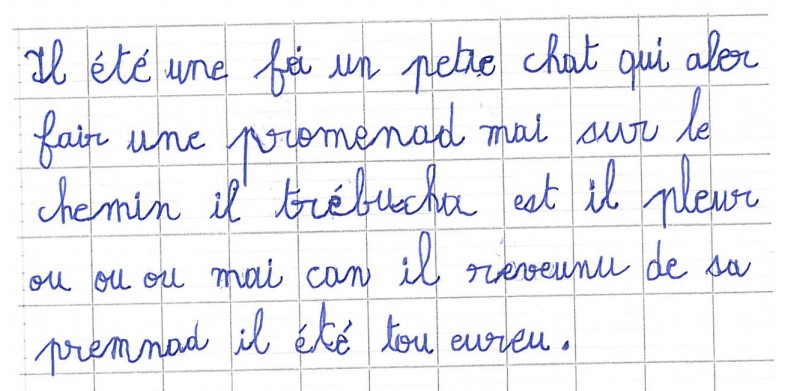 Il été une fèi un petre chat qui aler
fair une promenad mai sur le
chemin il trébucha est il pleur
ou ou ou mai can il reveunu de sa
premnad il été tou eureu.